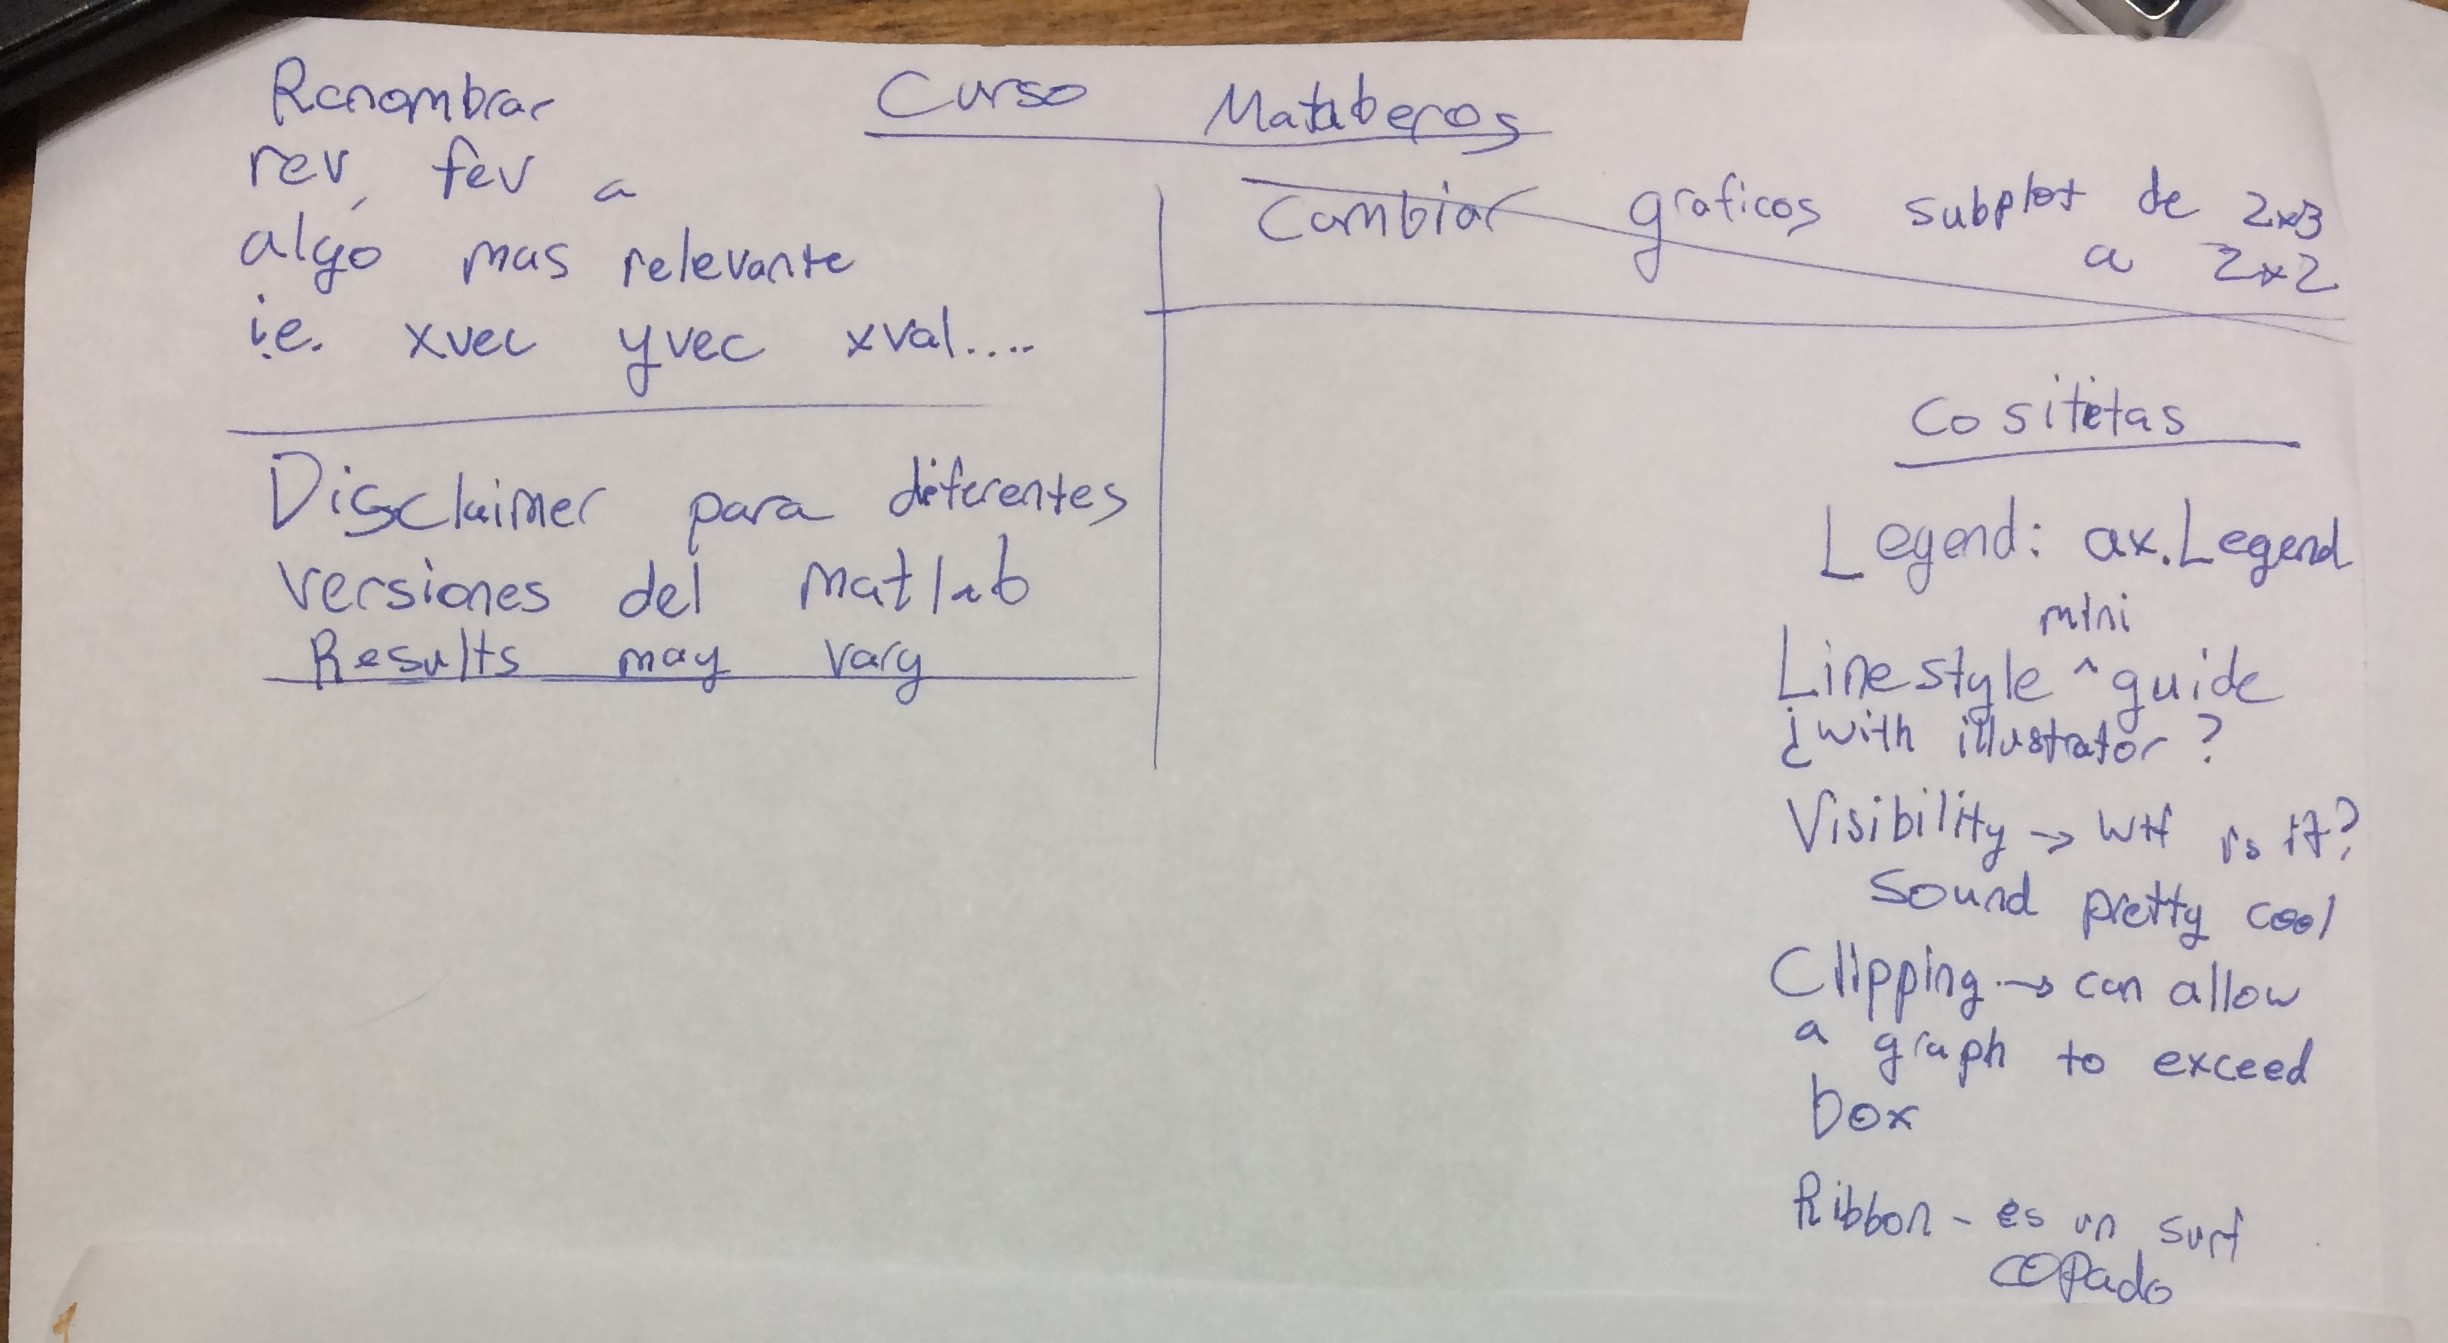 Curso Matlaberos
Renombrar
rev, fev a
algo mas relevante
i.e. xvec yvec xval....
Disclaimer para diferentes
versiones del Matlab
Results may vary
Cambiar graficos subplot de 2x3
a 2x2
Cositetas
Legend: ax.Legend
mini
Linestyle ^ guide
¿with illustrator?
Visibility → wtf is it?
Sound pretty cool
Clipping → can allow
a graph to exceed
box
Ribbon - es un surf
copado